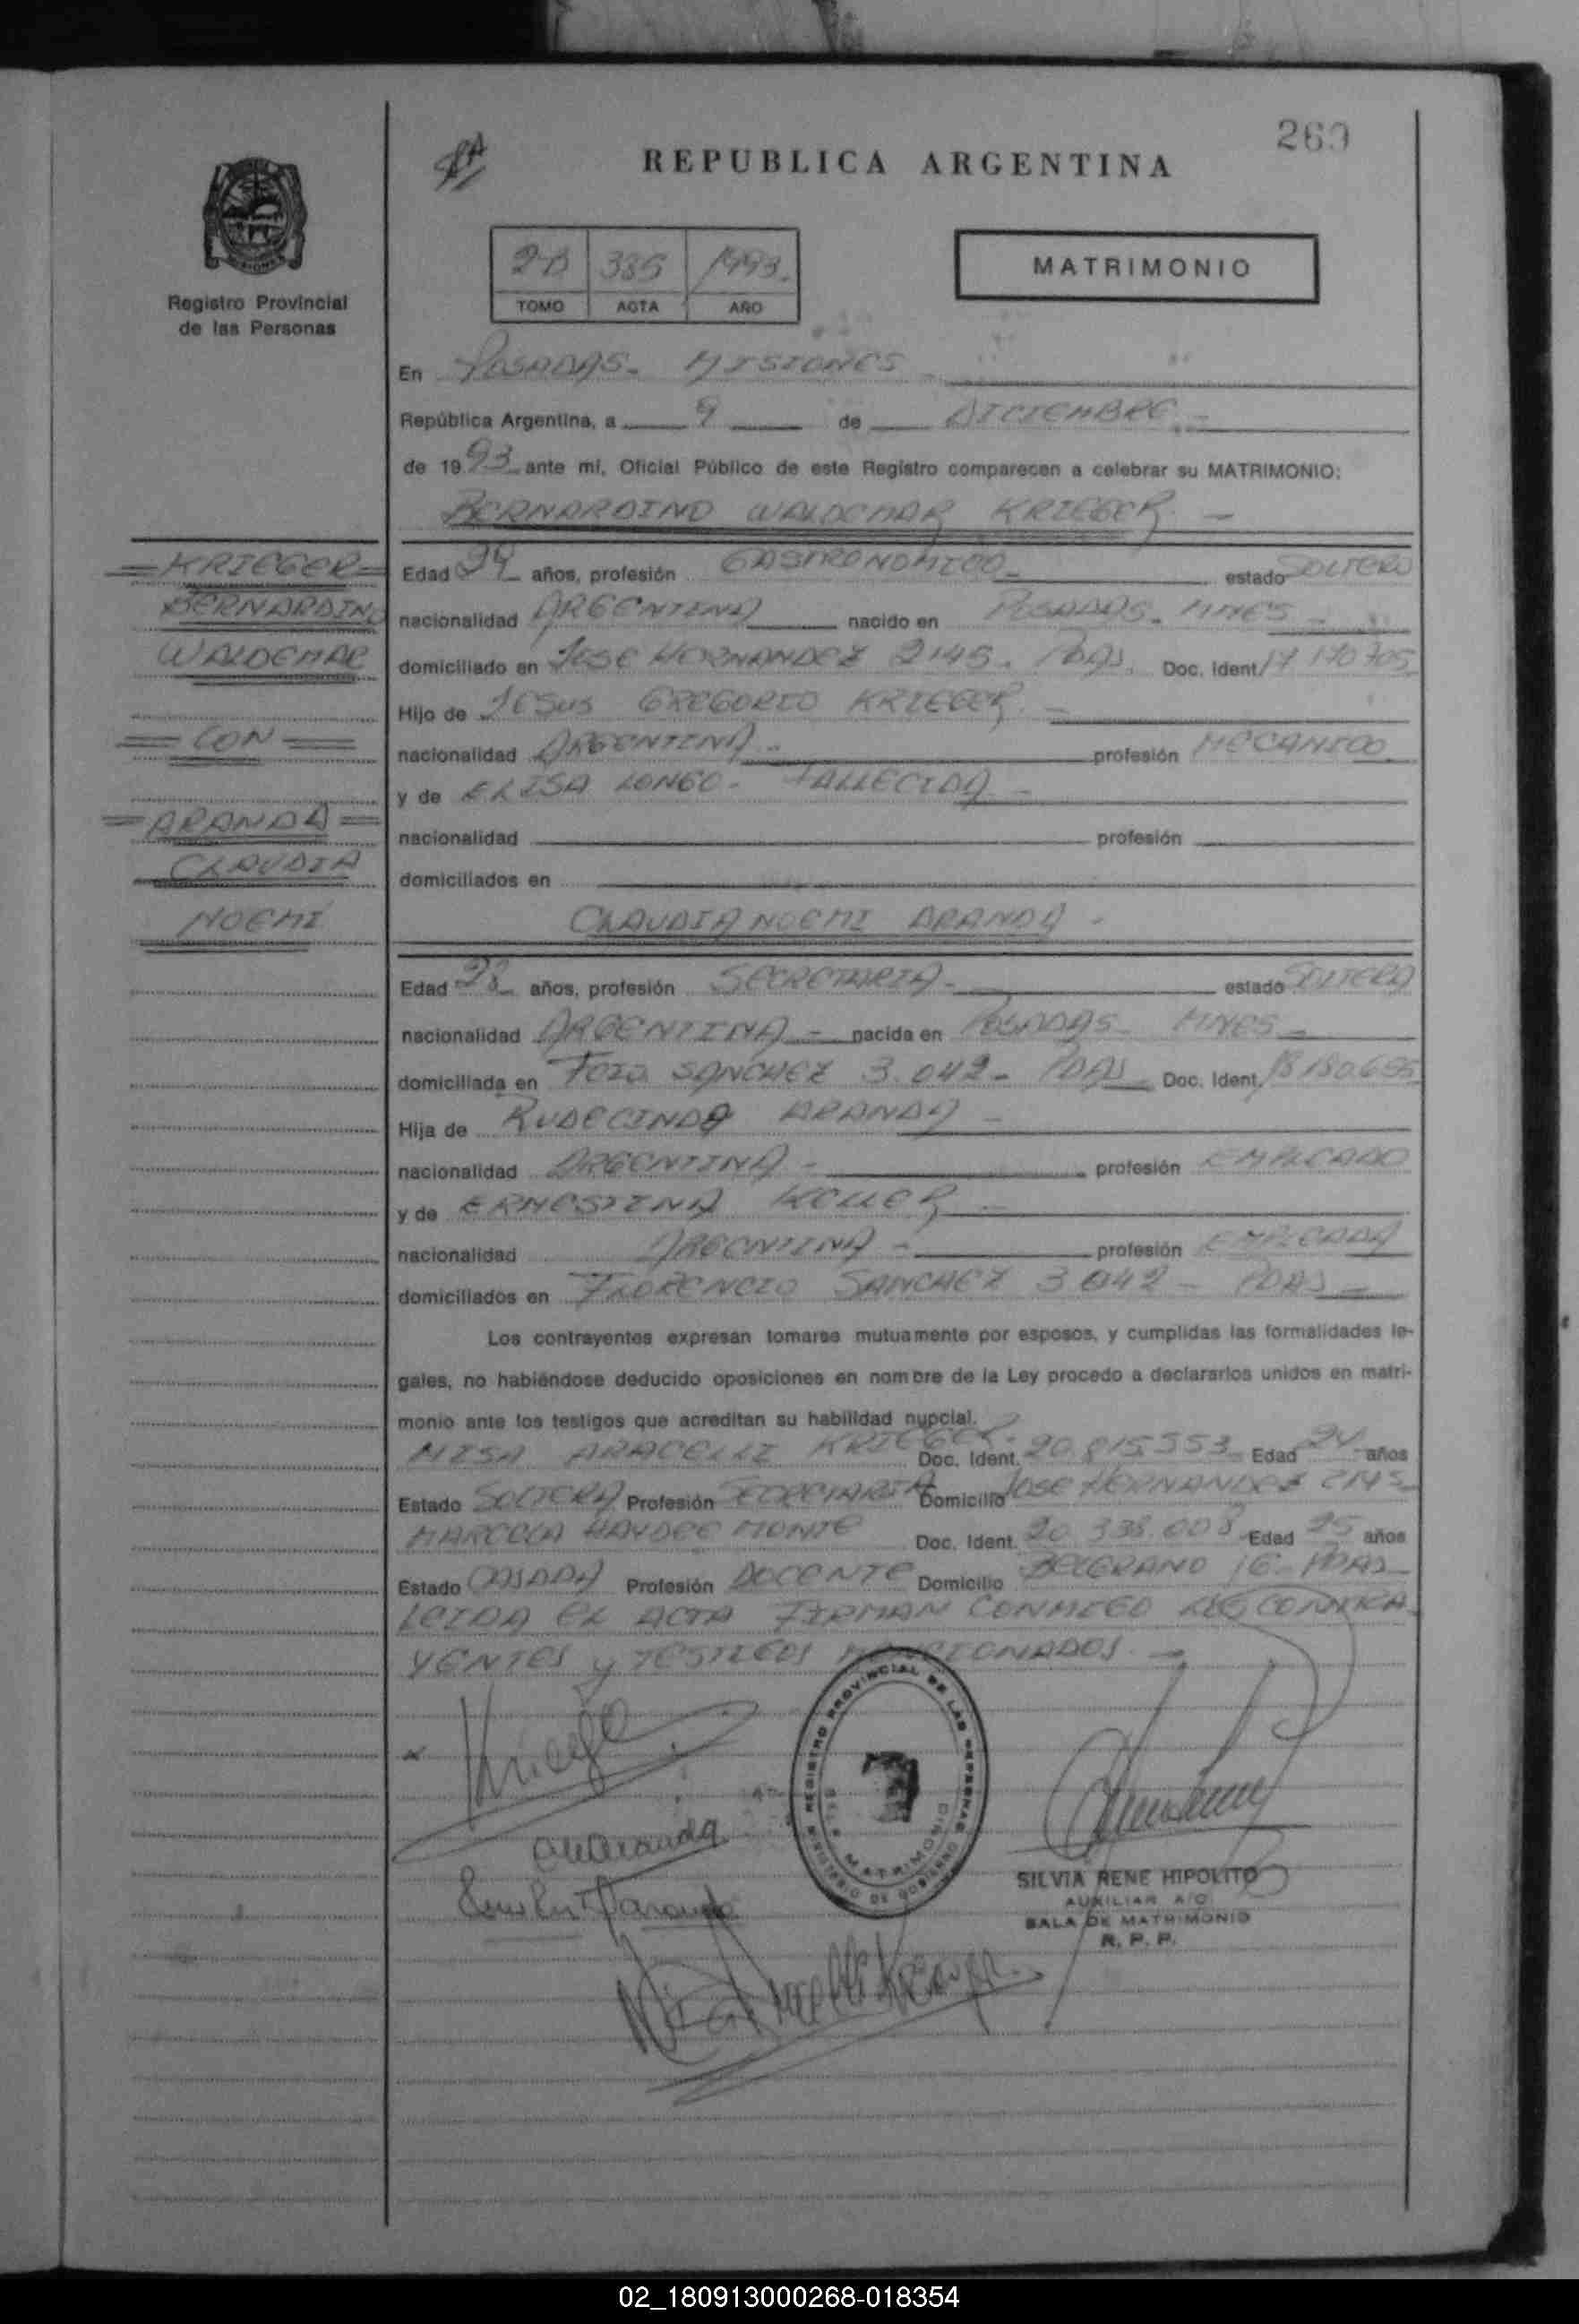 269
REPUBLICA ARGENTINA
2B 385 1993.
TOMO ACTA AÑO
MATRIMONIO
Registro Provincial
de las Personas
En POSADAS. MISIONES
República Argentina, a 9 de DICIEMBRE
de 1993 ante mí, Oficial Público de este Registro comparecen a celebrar su MATRIMONIO:
BERNARDINO WALDEMAR KRIEGER
KRIEGER
BERNARDINO
WALDEMAR
CON
ARANDA
CLAUDIA
NOEMI
Edad años, profesión GASTRONOMICO estado SOLTERO
nacionalidad ARGENTINA nacido en POSADAS. MNES
domiciliado en JOSE HERNANDEZ 2145. PDAS. Doc. Ident. 17 170 705
Hijo de JESUS GREGORIO KRIEGER
nacionalidad ARGENTINA profesión MECANICO
y de ELISA LONGO. FALLECIDA
nacionalidad profesión
domiciliados en
CLAUDIA NOEMI ARANDA
Edad años, profesión SECRETARIA estado SOLTERA
nacionalidad ARGENTINA nacida en POSADAS MNES
domiciliada en SANCHEZ 3.042 PDAS Doc. Ident.
Hija de RUDECINDO ARANDA
nacionalidad ARGENTINA profesión EMPLEADO
y de ERNESTINA
nacionalidad ARGENTINA profesión EMPLEADA
domiciliados en FLORENCIO SANCHEZ 3042 PDAS
Los contrayentes expresan tomarse mutuamente por esposos, y cumplidas las formalidades le-
gales, no habiéndose deducido oposiciones en nombre de la Ley procedo a declararlos unidos en matri-
monio ante los testigos que acreditan su habilidad nupcial.
ARACELLI KRIEGER. Doc. Ident. 20.815.553 Edad 24 años
Estado SOLTERA Profesión SECRETARIA Domicilio JOSE HERNANDEZ 2145
MARCELA HAYDEE MONTE Doc. Ident. 20.338.008 Edad 25 años
Estado CASADA Profesión DOCENTE Domicilio BELGRANO 16 PDAS
LEIDA EL ACTA FIRMAN CONMIGO LOS CONTRA
YENTES y TESTIGOS MENCIONADOS.
REGISTRO PROVINCIAL DE LAS PERSONAS
MINISTERIO DE GOBIERNO
MATRIMONIO
SILVIA RENE HIPOLITO
AUXILIAR A/C
SALA DE MATRIMONIO
R. P. P.
02_180913000268-018354